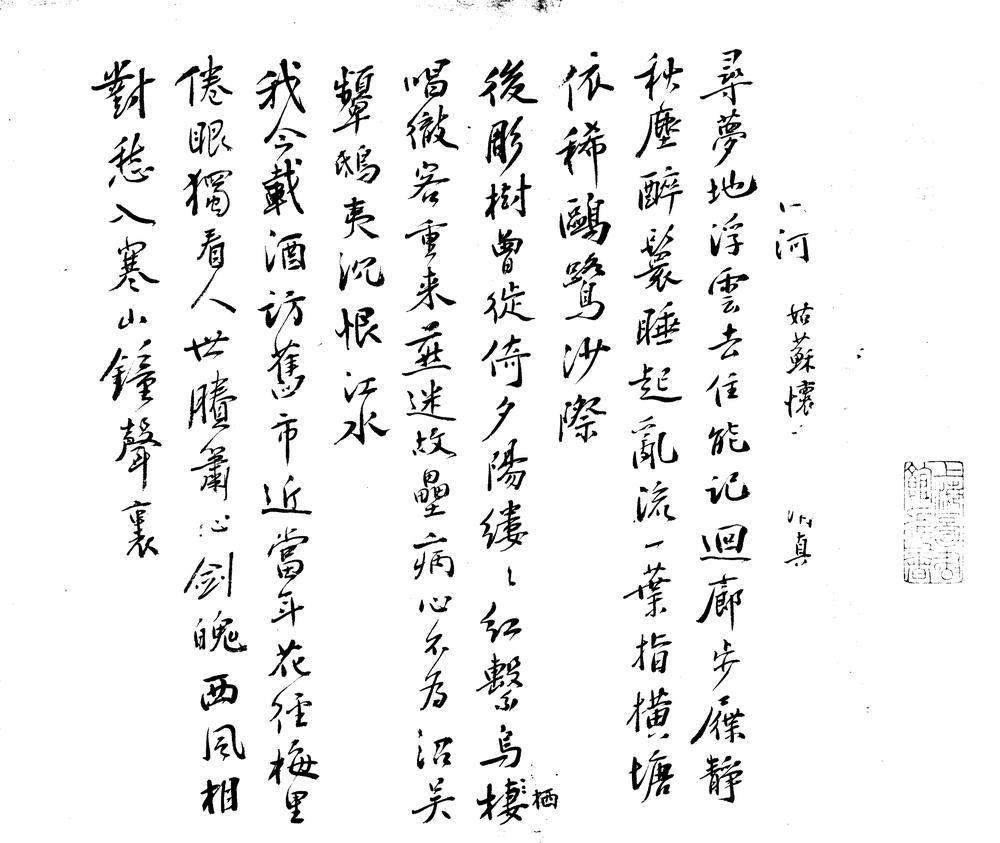 河 姑蘇懷 貞
尋夢地浮雲去住能記迴廊步屧靜
秋塵醉鬟睡起亂流一葉指橫塘
依稀鷗鷺沙際
後彫樹曾徙倚夕陽縷〻紅繫烏棲
栖
唱徹客重来燕迷故壘病心不為沼吴
顰鴟夷沉恨江水
我今載酒訪舊市近當年花徑梅里
倦眼獨看人世賸簫心劍魄西風相
對愁入寒山鐘聲裏